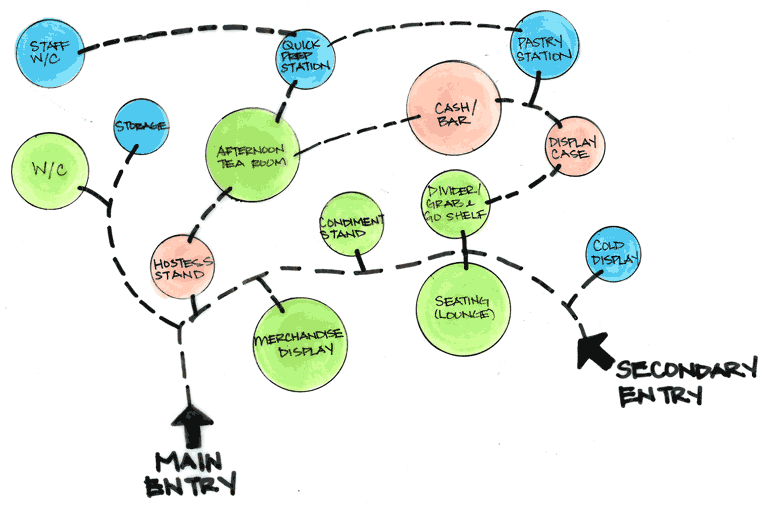 STAFF
W/C
QUICK
PREP
STATION
PASTRY
STATION
STORAGE
CASH/
BAR
W/C
AFTERNOON
TEA ROOM
DISPLAY
CASE
DIVIDER/
GRAB &
GO SHELF
CONDIMENT
STAND
HOSTESS
STAND
COLD
DISPLAY
SEATING
(LOUNGE)
MERCHANDISE
DISPLAY
SECONDARY
ENTRY
MAIN
ENTRY